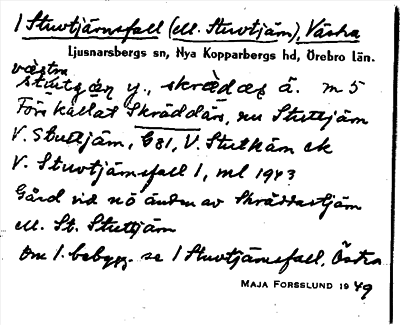 1 Stuvtjärnsfall (ell. Stuvtjärn), Västra
Ljusnarsbergs sn, Nya Kopparbergs hd, Örebro län.
västra
y., å. m 5
Förr kallat Skräddars, nu Stuttjärn
V. Stuttjärn, G31, V. Stutkärn ek
V. Stuvtjärnsfall 1, ml 1943
Gård vid nö änden av Skräddartjärn
ell. St. Stuttjärn
Om 1. bebygg. se 1 Stuvtjärnsfall, Östra
MAJA FORSSLUND 1949